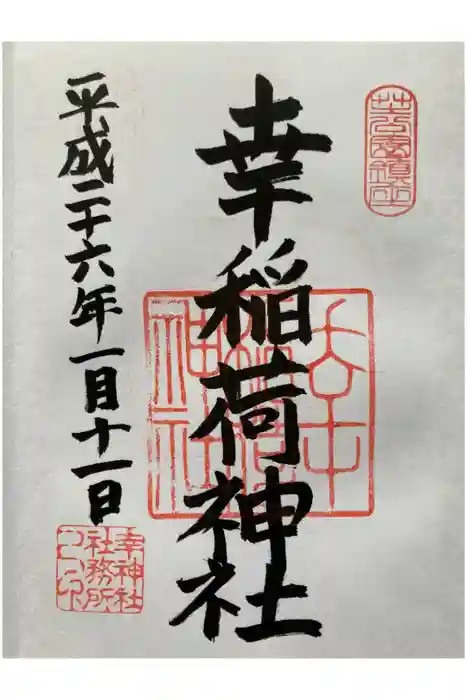 芝公園鎮座
幸稲荷神社
平成二十六年一月十一日
幸神社
社務所
之印